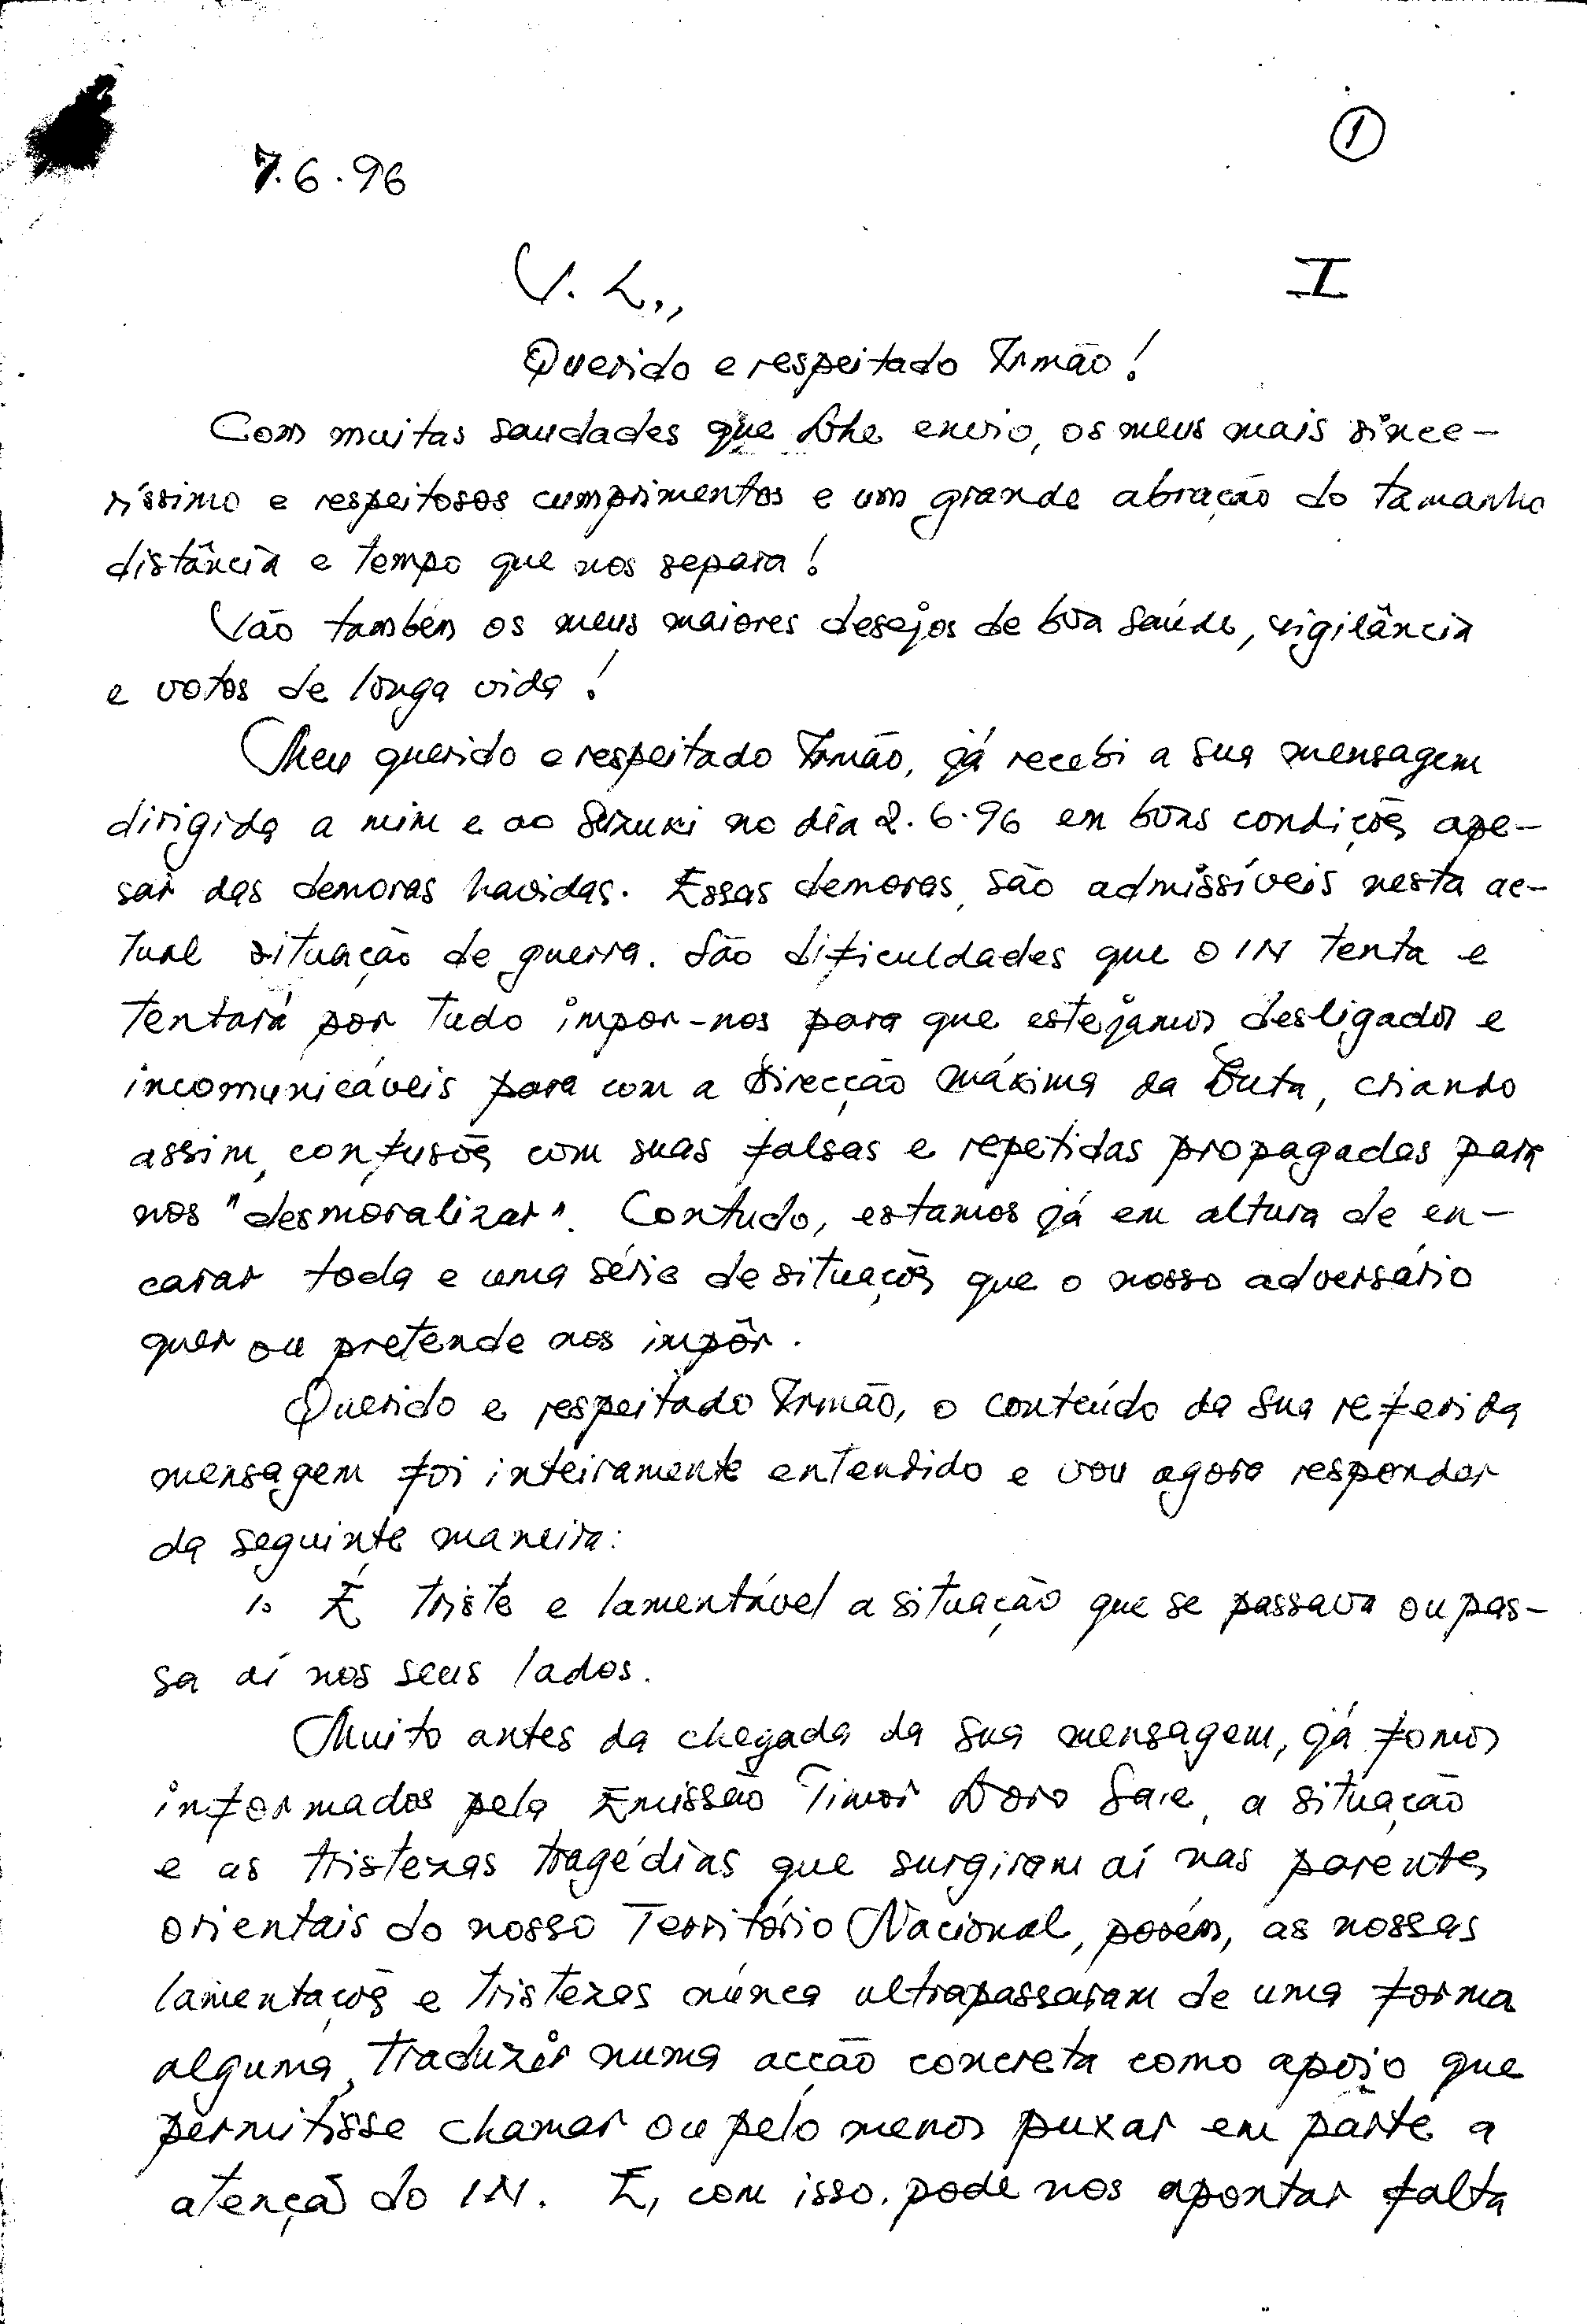 ①
7.6.96
V. L.,
I
Querido e respeitado Irmão!
Com muitas saudades que lhe envio, os meus mais since-
ríssimo e respeitosos cumprimentos e um grande abração do tamanho
distância e tempo que nos separa!
Vão também os meus maiores desejos de boa saúde, vigilância
e votos de longa vida!
Meu querido e respeitado Irmão, já recebi a sua mensagem
dirigida a mim e ao Suzuki no dia 2.6.96 em boas condiçõs ape-
sar das demoras havidas. Essas demoras, são admissíveis nesta ac-
tual situação de guerra. São dificuldades que o IN tenta e
tentará por tudo impor-nos para que estejamos desligados e
incomunicáveis para com a Direcção máxima da Luta, criando
assim, confusõs com suas falsas e repetidas propagadas para
nos "desmoralizar". Contudo, estamos já em altura de en-
carar toda e uma série de situaçõs que o nosso adversário
quer ou pretende nos impôr.
Querido e respeitado Irmão, o conteúdo da sua referida
mensagem foi inteiramente entendido e vou agora responder
da seguinte maneira:
1. É triste e lamentável a situação que se passava ou pas-
sa aí nos seus lados.
Muito antes da chegada da sua mensagem, já fomos
informados pela Emissão Timor Loro Sae, a situação
e as tristezas tragédias que surgiram aí nas parentes
orientais do nosso Território Nacional, porém, as nossas
lamentaçõs e tristezas núnca ultrapassaram de uma forma
alguma, traduzir numa acção concreta como apoio que
permitisse chamar ou pelo menos puxar em parte a
atençã do IN. E, com isso, pode nos apontar falta